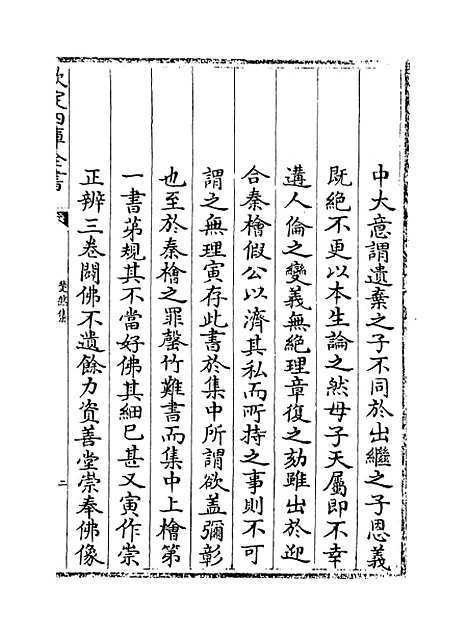 中大意謂遺棄之子不同於出繼之子恩義
既絶不更以本生論之然母子天屬即不幸
遘人倫之變義無絶理章復之劾雖出於迎
合秦檜假公以濟其私而所持之事則不可
謂之無理寅存此書於集中所謂欲蓋彌彰
也至於秦檜之罪罄竹難書而集中上檜第
一書苐規其不當好佛其細已甚又寅作崇
正辨三卷闢佛不遺餘力資善堂崇奉佛像
欽定四庫全書
斐然集
二